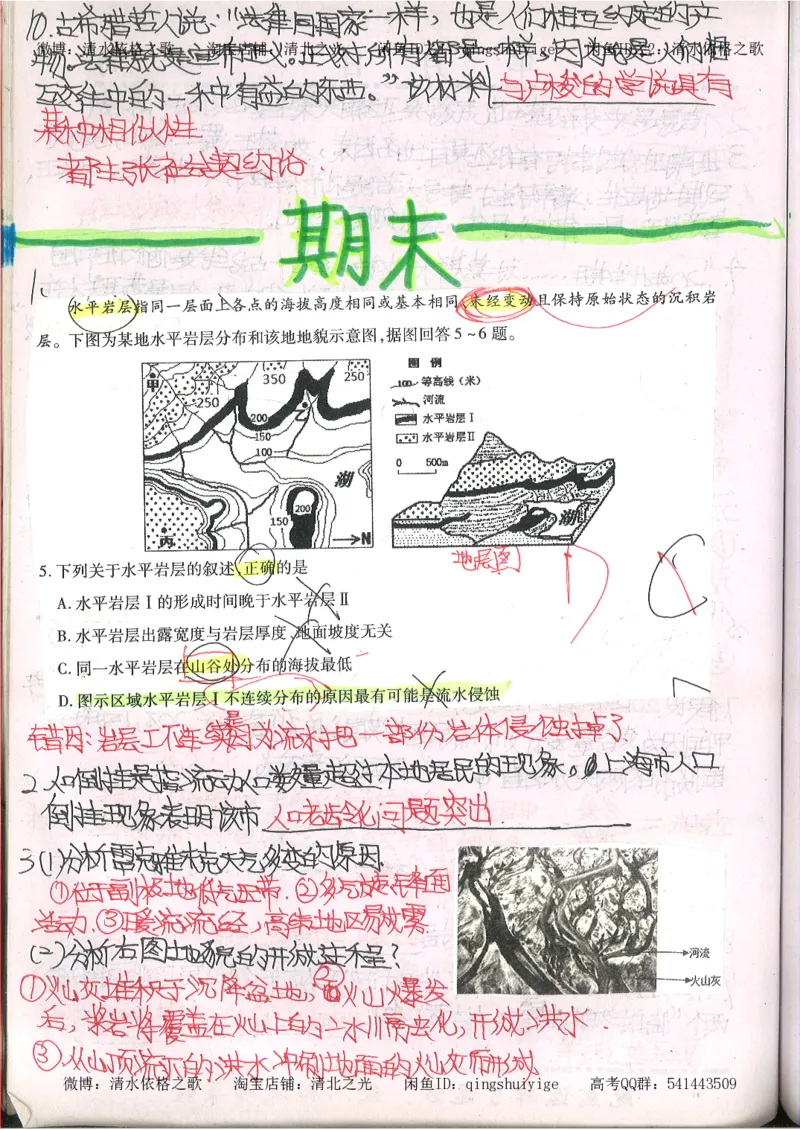 10.古希腊哲人说:"法律同国家一样,也是人们相互约定的产
微博:清水依格之歌 淘宝店铺:清北之光
"该材料与卢梭的学说具有
某种相似性
都主张社会契约论
期末
1.
水平岩层指同一层面上各点的海拔高度相同或基本相同、未经变动且保持原始状态的沉积岩
层。下图为某地水平岩层分布和该地地貌示意图,据图回答5~6题。
甲
350
250
250
200
150
100
乙
湖
200
150
丙
N
图 例
100 等高线(米)
河流
水平岩层Ⅰ
水平岩层Ⅱ
0 500m
湖
地层图
5.下列关于水平岩层的叙述,正确的是
A.水平岩层Ⅰ的形成时间晚于水平岩层Ⅱ
B.水平岩层出露宽度与岩层厚度、地面坡度无关
C.同一水平岩层在山谷处分布的海拔最低
D.图示区域水平岩层Ⅰ不连续分布的原因最有可能是流水侵蚀
错因:岩层工不连续是因为流水把一部份岩体侵蚀掉了
2.人口倒挂是指流动人口数量超过本地居民的现象。上海市人口
倒挂现象表明该市 人口老龄化问题突出
3(1)分析雷克雅未克天气多变的原因
①位于副极地低气压带.②多气旋、锋面
活动.③暖流流经,高纬地区易成雾.
(2)分析右图地貌的形成过程?
河流
火山灰
①火山灰堆积于沉降盆地,②火山爆发
后,岩浆将覆盖在火山上的冰川融化,形成洪水.
③从山顶流下的洪水冲刷地面的火山灰而形成
微博:清水依格之歌 淘宝店铺:清北之光 闲鱼ID:qingshuiyige 高考QQ群:541443509